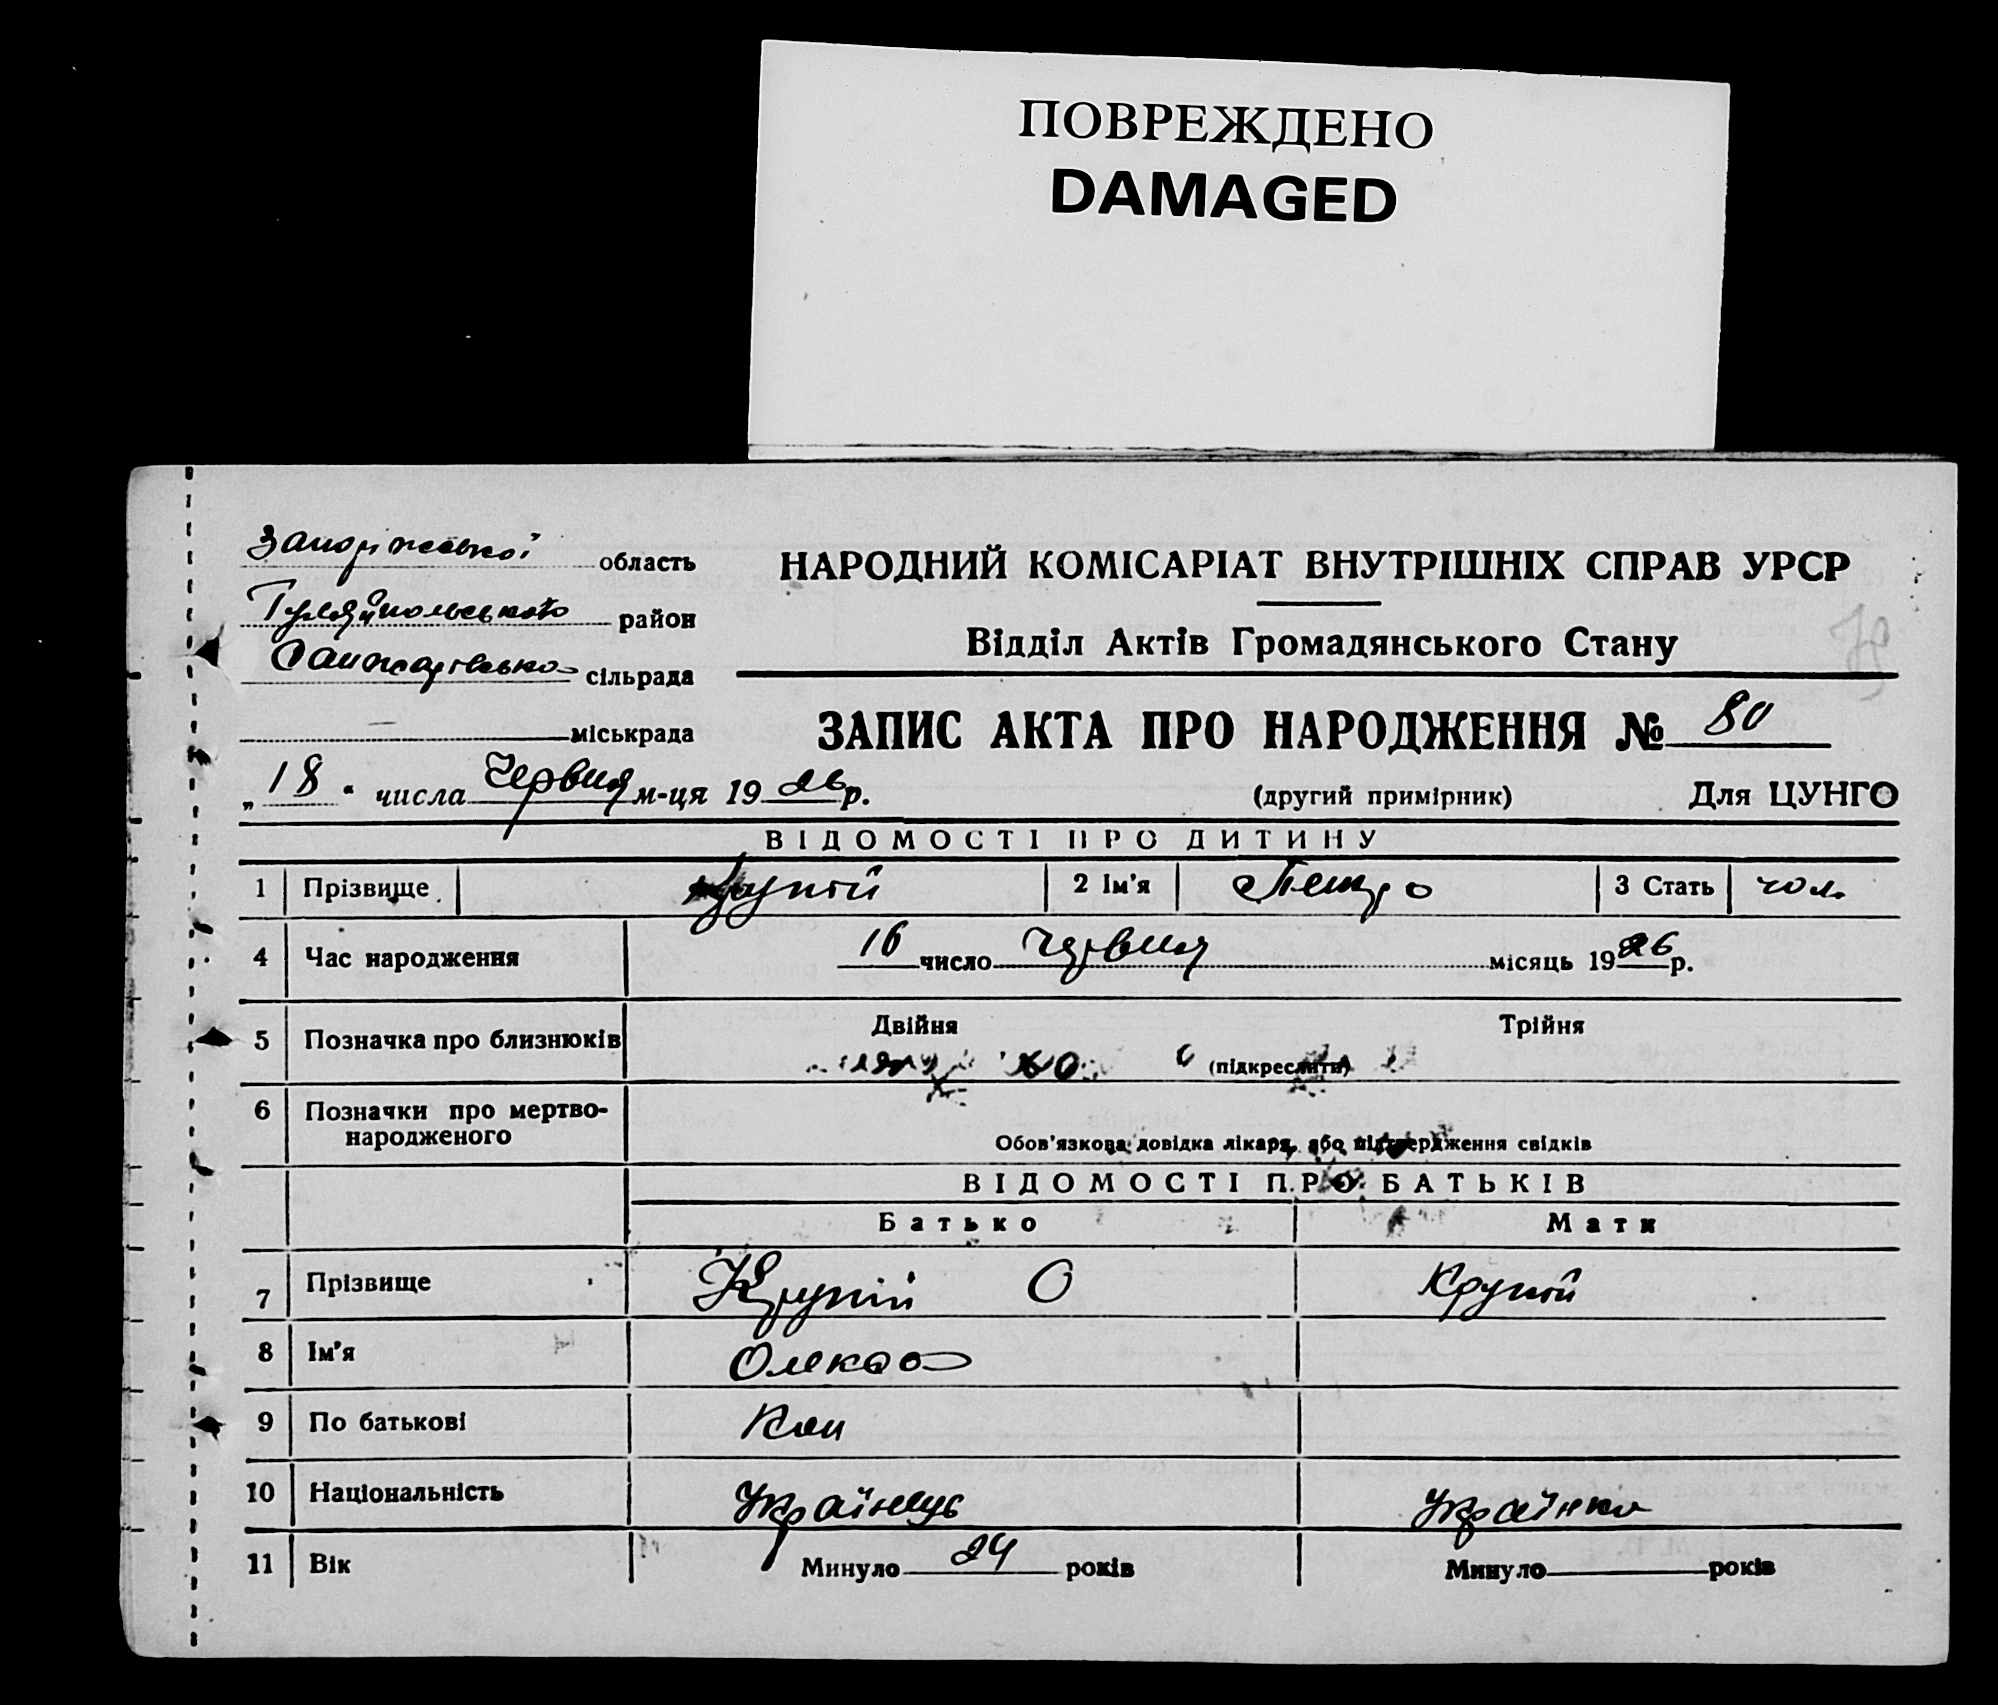 ПОВРЕЖДЕНО
DAMAGED
Запоріжської область
Гуляйпольського район
сільрада
міськрада
НАРОДНИЙ КОМІСАРІАТ ВНУТРІШНІХ СПРАВ УРСР
Відділ Актів Громадянського Стану
ЗАПИС АКТА ПРО НАРОДЖЕННЯ № 80
„18“ числа Червня м-ця 1926 р.
(другий примірник) Для ЦУНГО
ВІДОМОСТІ ПРО ДИТИНУ
1 Прізвище Крупій 2 Ім'я Петро 3 Стать чол.
4 Час народження 16 число Червня місяць 1926 р.
5 Позначка про близнюків Двійня Трійня
(підкреслити)
6 Позначки про мертво-
народженого
Обов'язкова довідка лікаря, або підтвердження свідків
ВІДОМОСТІ ПРО БАТЬКІВ
Батько Мати
7 Прізвище Крупій О Крупій
8 Ім'я
9 По батькові
10 Національність Українець Українка
11 Вік Минуло 24 років Минуло років